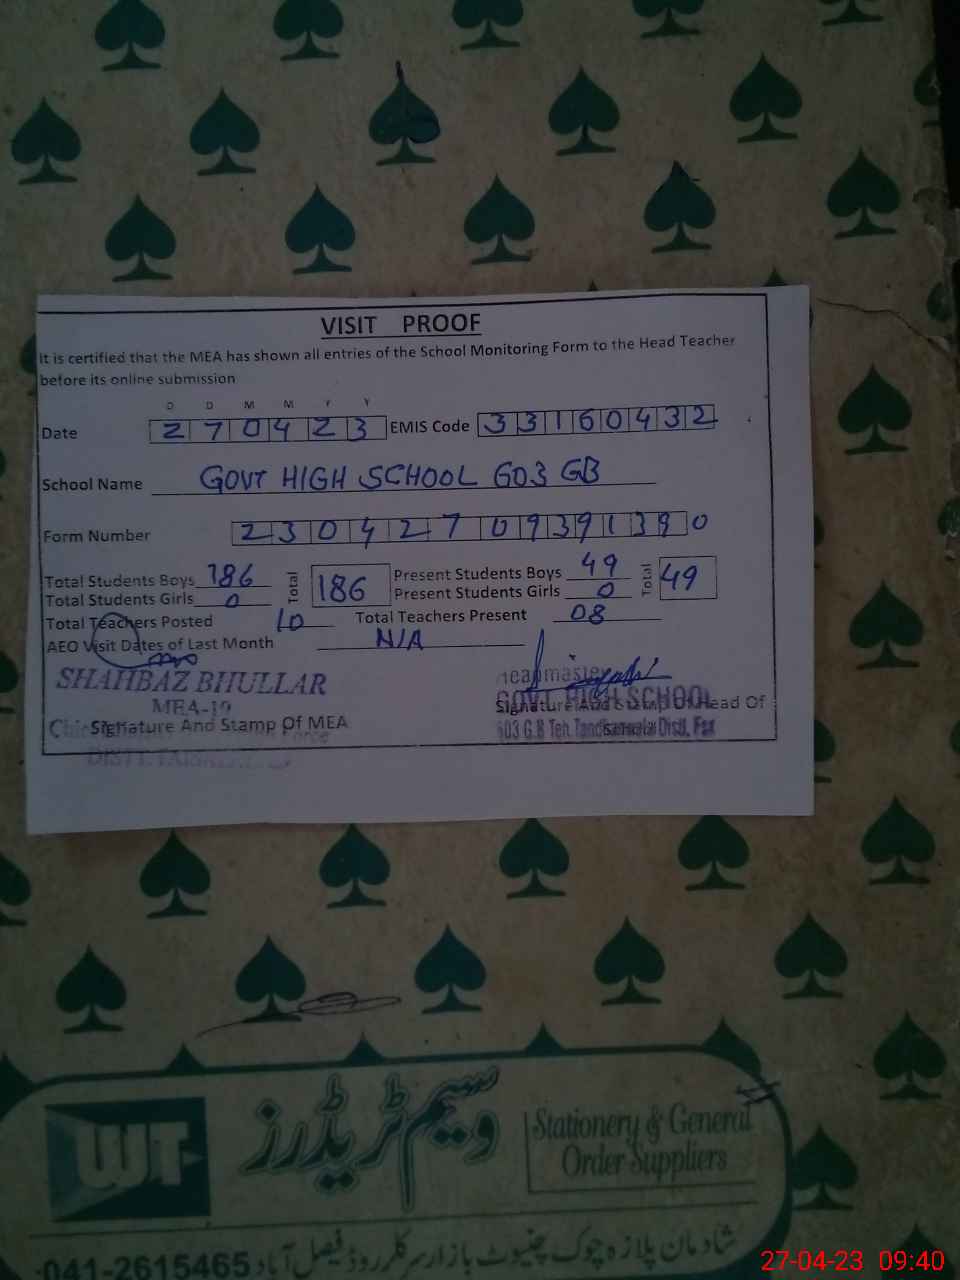 VISIT PROOF
It is certified that the MEA has shown all entries of the School Monitoring Form to the Head Teacher
before its online submission
D D M M Y Y
Date 270423 EMIS Code 33160432
School Name GOVT HIGH SCHOOL 603 GB
Form Number 2304270939139 0
Total Students Boys 186 Total 186 Present Students Boys 49 Total 49
Total Students Girls 0 Present Students Girls 0
Total Teachers Posted 10 Total Teachers Present 08
AEO Visit Dates of Last Month N/A
SHAHBAZ BHULLAR
MEA-19
Signature And Stamp Of MEA
Headmaster
GOVT. HIGH SCHOOL
Signature And Stamp Of Head Of
603 G.B Teh. Tandlianwala Distt. Fsd
WT
وسیم ٹریڈرز
Stationery & General
Order Suppliers
شادمان پلازہ چوک چنیوٹ بازار سرکلر روڈ فیصل آباد 041-2615465
27-04-23 09:40